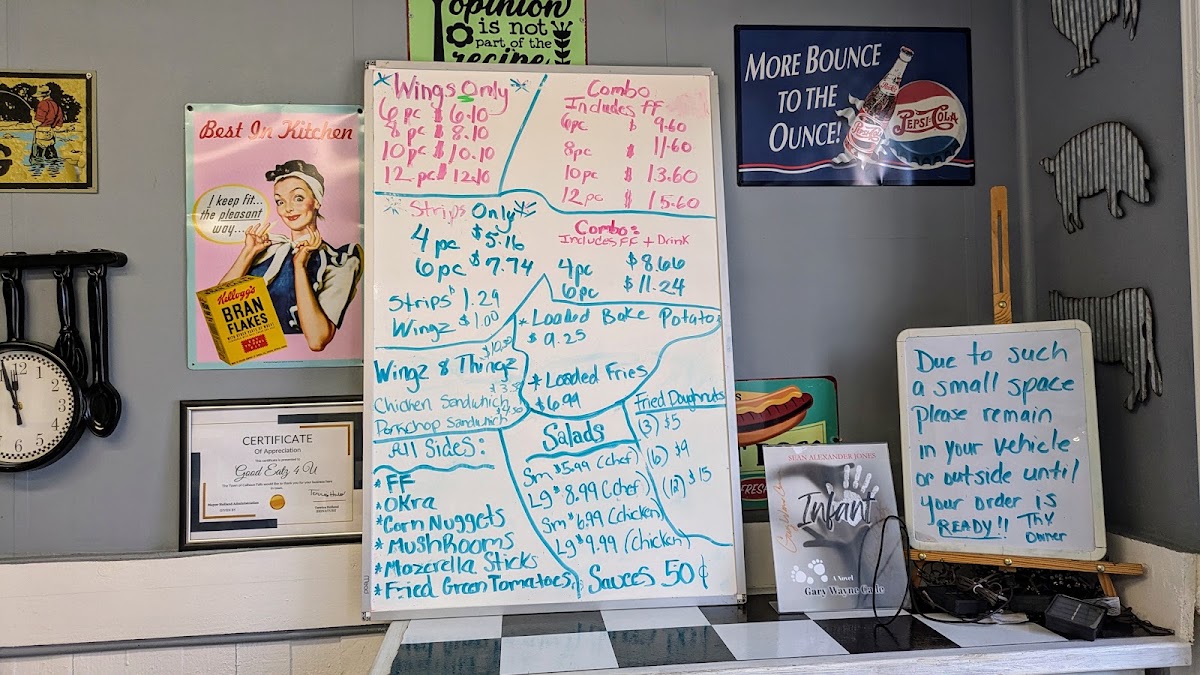 opinion
is not
part of the
recipe
Best In Kitchen
I keep fit...
the pleasant
way...
Kellogg's
BRAN
FLAKES
MORE BOUNCE
TO THE
OUNCE!
PEPSI-COLA
Wings Only
6 pc $6.10
8 pc $8.10
10 pc $10.10
12 pc $12.10
Combo
Includes FF
6pc $ 9.60
8pc $ 11.60
10pc $ 13.60
12pc $ 15.60
Strips Only
4 pc $5.16
6 pc $7.74
Combo:
Includes FF + Drink
4pc $8.66
6pc $11.24
Strips 1.29
Wingz $1.00
* Loaded Bake Potato
$9.25
* Loaded Fries
$6.99
Wingz & Thingz
Chicken Sandwhich
Porkchop Sandwhich
All Sides:
* FF
* OKra
* Corn Nuggets
* MushRooms
* Mozerella Sticks
* Fried Green Tomatoes
Salads
Sm $5.99 (chef)
Lg $8.99 (Chef)
Sm $6.99 (Chicken)
Lg $9.99 (Chicken)
Fried Doughnuts
(3) $5
(6) $9
(12) $15
Sauces 50¢
CERTIFICATE
Of Appreciation
Good Eatz 4 U
SEAN ALEXANDER JONES
Infant
A Novel
Gary Wayne
Due to such
a small space
Please remain
in your vehicle
or outside until
your order is
READY!! Thy
Owner